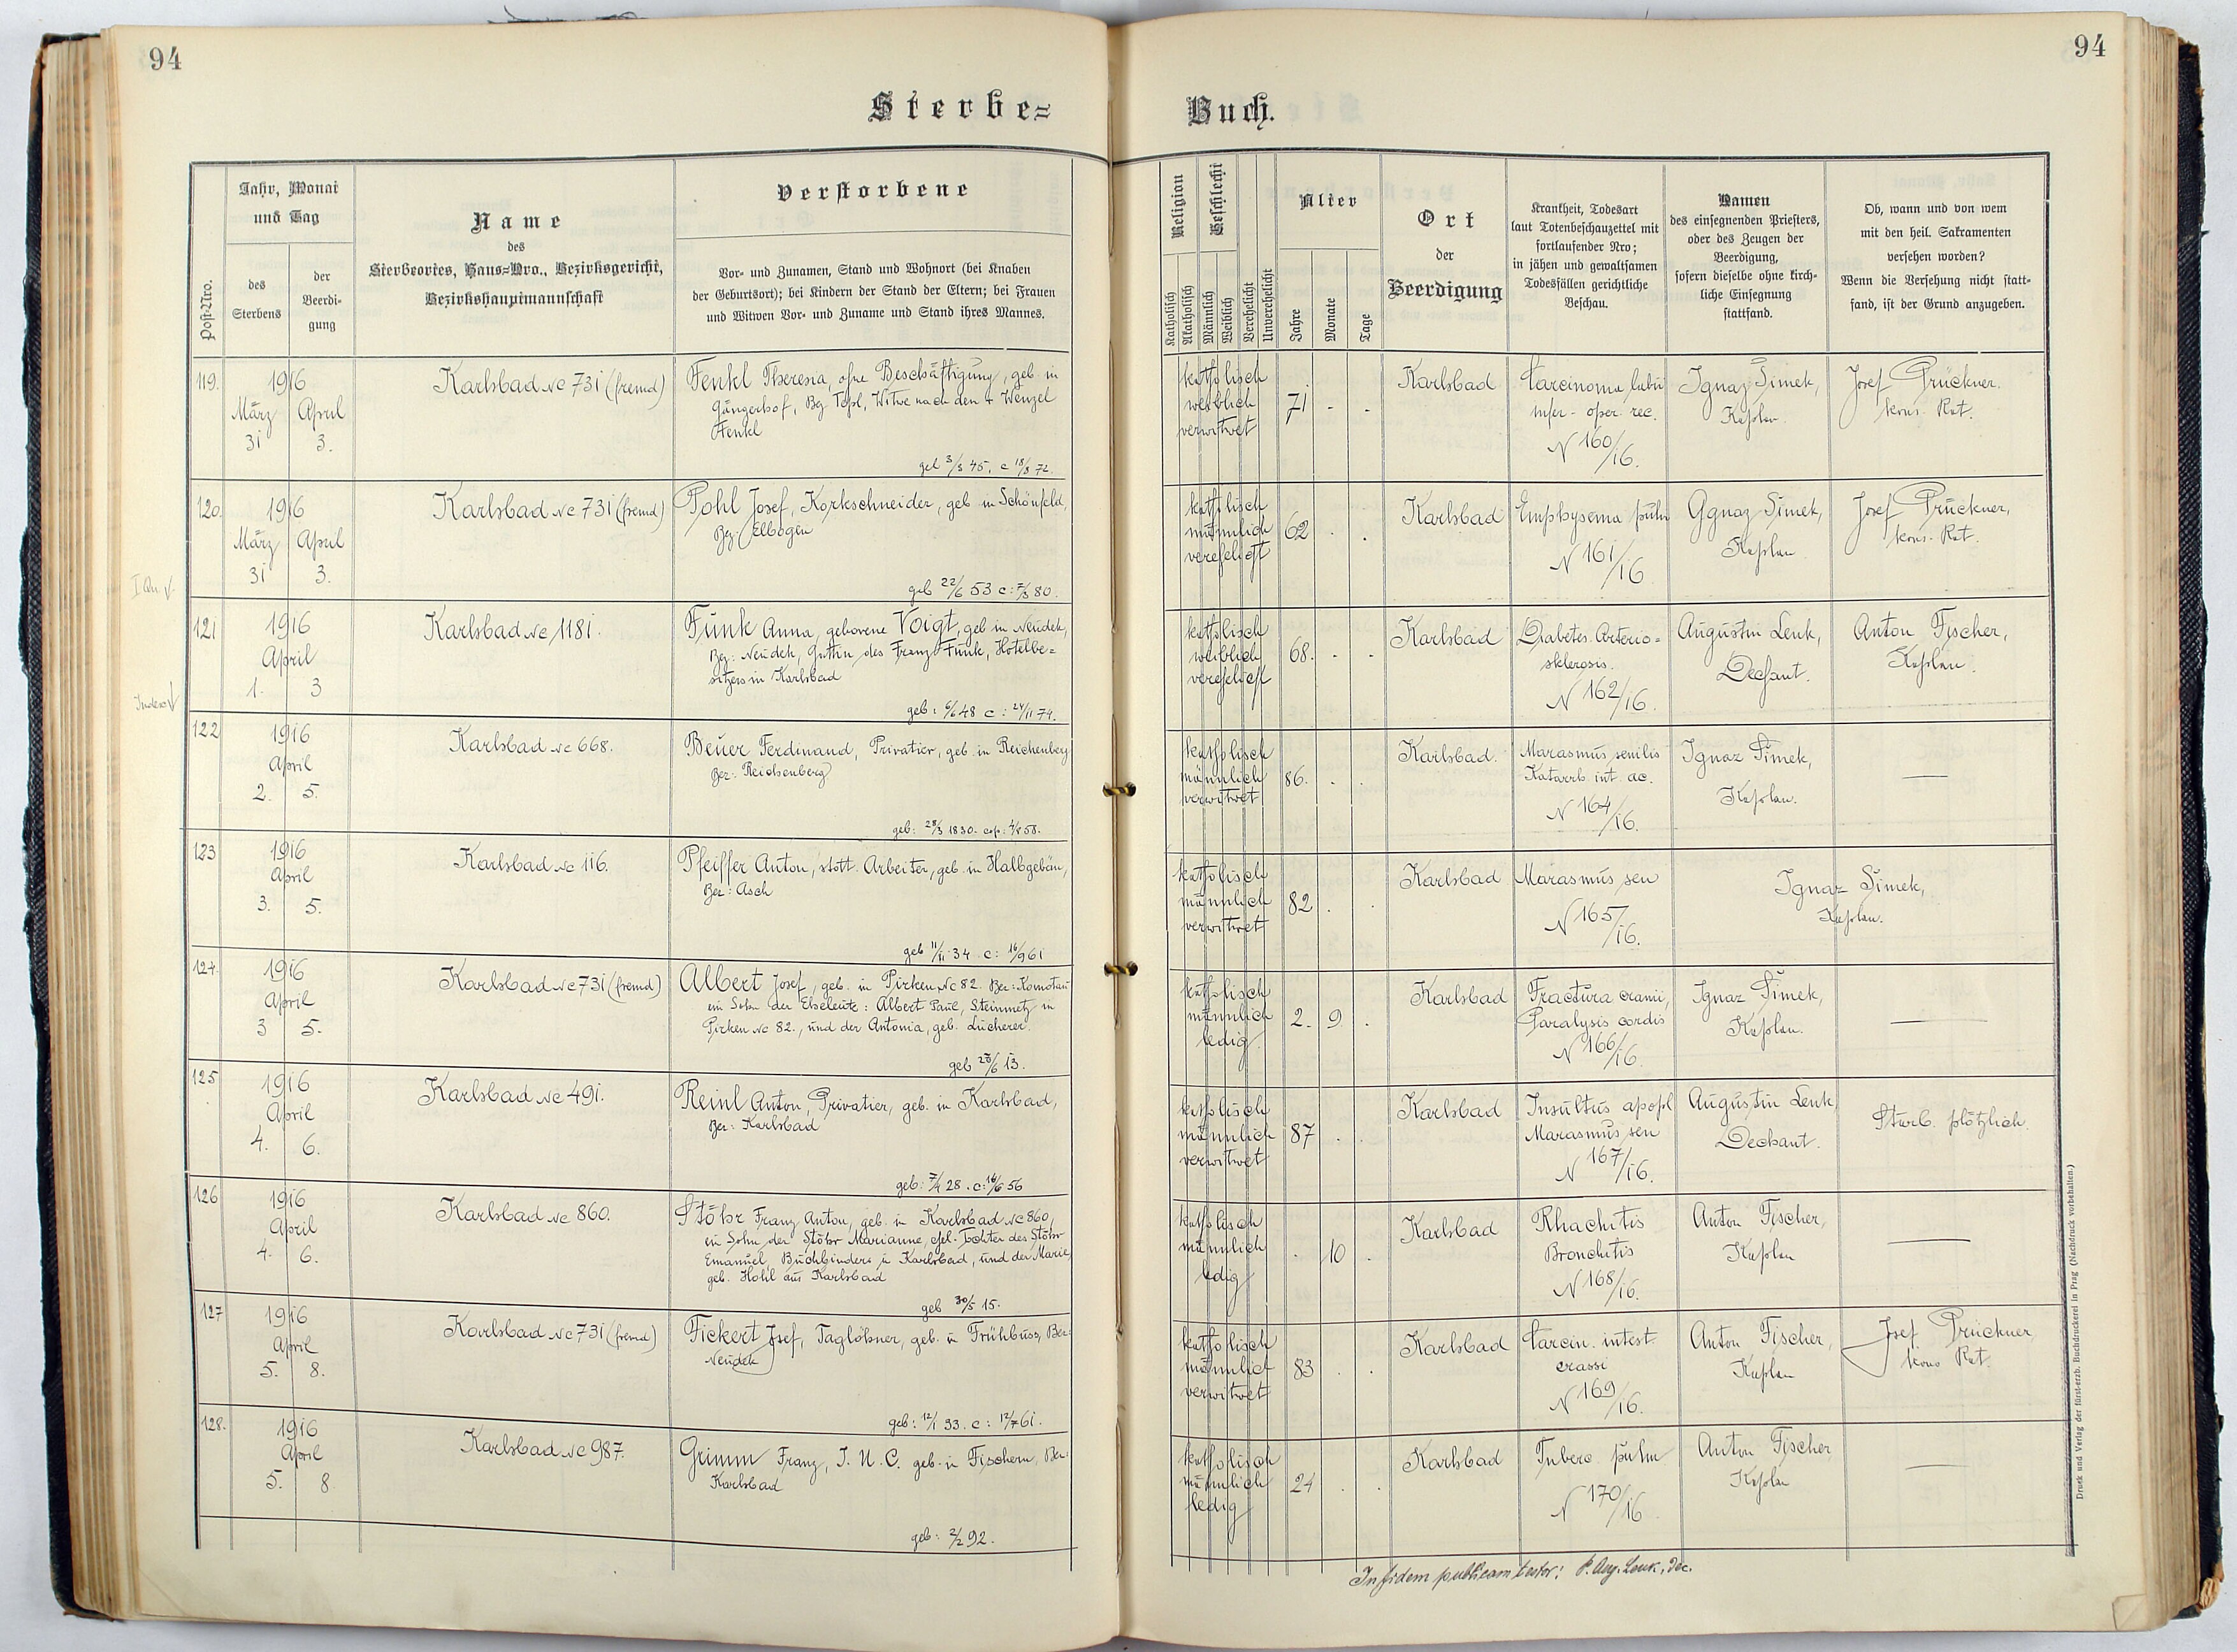 94
94
Sterbe=
Buch.
Post-Nro.
Jahr, Monat
und Tag
des
Sterbens
der
Beerdi-
gung
Name
des
Sterbeortes, Haus=Nro., Bezirksgericht,
Bezirkshauptmannschaft
Verstorbene
Vor- und Zunamen, Stand und Wohnort (bei Knaben
der Geburtsort); bei Kindern der Stand der Eltern; bei Frauen
und Witwen Vor- und Zuname und Stand ihres Mannes.
Religion
Katholisch
Akatholisch
Geschlecht
Männlich
Weiblich
Verehelicht
Unverehelicht
Alter
Jahre
Monate
Tage
Ort
der
Beerdigung
Krankheit, Todesart
laut Totenbeschauzettel mit
fortlaufender Nro;
in jähen und gewaltsamen
Todesfällen gerichtliche
Beschau.
Namen
des einsegnenden Priesters,
oder des Zeugen der
Beerdigung,
sofern dieselbe ohne kirch-
liche Einsegnung
stattfand.
Ob, wann und von wem
mit den heil. Sakramenten
versehen worden?
Wenn die Versehung nicht statt-
fand, ist der Grund anzugeben.
119.
1916
März April
31 3.
Karlsbad Nc 731 (fremd)
Fenkl Theresia, ohne Beschäftigung, geb in
Gängerhof, Bez Tepl, Witwe nach dem + Wenzel
Fenkl
geb 3/3 45, c 18/8 72.
katholisch
weiblich
verwitwet
71 - -
Karlsbad
Carcinoma labii
infer - oper. rec.
N 160/16.
Ignaz Šimek,
Kaplan.
Josef Prückner.
kons. Rat.
120.
1916
März April
31 3.
Karlsbad Nc 731 (fremd)
Pohl Josef, Korkschneider, geb in Schönfeld,
Bez. Elbogen
geb 22/6 53 c: 7/3 80.
katholisch
männlich
verehelicht
62
Karlsbad
Emphysema pulm
N 161/16
Ignaz Šimek,
Kaplan
Josef Prückner,
kons. Rat.
121
1916
April
1. 3
Karlsbad Nc 1181.
Funk Anna, geborene Voigt, geb in Neudek,
Bez: Neudek, Gattin des Franz Funk, Hotelbe=
sitzers in Karlsbad
geb: 6/6 48 c: 24/11 74.
katholisch
weiblich
verehelicht
68. - -
Karlsbad
Diabetes. Arterio=
sklerosis.
N 162/16.
Augustin Lenk,
Dechant.
Anton Fischer,
Kaplan.
122
1916
April
2. 5.
Karlsbad Nc 668.
Beuer Ferdinand, Privatier, geb. in Reichenberg
Bez: Reichenberg
geb: 28/3 1830. cop: 4/8 58.
katholisch
männlich
verwitwet
86.
Karlsbad.
Marasmus senilis
Katarrh. int. ac.
N 164/16.
Ignaz Šimek,
Kaplan.
123
1916
April
3. 5.
Karlsbad Nc 116.
Pfeiffer Anton, städt. Arbeiter, geb. in Halbgebäu,
Bez: Asch
geb 11/11 34 c: 16/9 61
katholisch
männlich
verwitwet
82
Karlsbad
Marasmus sen
N 165/16.
Ignaz Šimek,
Kaplan.
124.
1916
April
3 5.
Karlsbad Nc 731 (fremd)
Albert Josef, geb. in Pirken Nc 82. Bez: Komotau
ein Sohn der Eheleute: Albert Paul, Steinmetz in
Pirken Nc 82., und der Antonia, geb. Lucherer.
geb 28/6 13.
katholisch
männlich
ledig
2. 9.
Karlsbad
Fractura cranii,
Paralysis cordis
N 166/16.
Ignaz Šimek,
Kaplan.
125
1916
April
4. 6.
Karlsbad Nc 491.
Reinl Anton, Privatier, geb. in Karlsbad,
Bez: Karlsbad
geb: 7/4 28. c: 16/6 56
katholisch
männlich
verwitwet
87
Karlsbad
Insultus apopl
Marasmus sen
N 167/16.
Augustin Lenk,
Dechant.
Starb. plötzlich.
126
1916
April
4. 6.
Karlsbad Nc 860.
Stöhr Franz Anton, geb. in Karlsbad Nc 860,
ein Sohn der Stöhr Marianne, ehel. Tochter des Stöhr
Emanuel, Buchbinders in Karlsbad, und der Marie,
geb. Hohl aus Karlsbad
geb 30/5 15.
katholisch
männlich
ledig
10
Karlsbad
Rhachitis
Bronchitis
N 168/16.
Anton Fischer,
Kaplan
127
1916
April
5. 8.
Karlsbad Nc 731 (fremd)
Fickert Josef, Taglöhner, geb. in Frühbuss, Bez:
Neudek
geb: 12/1 33. c: 12/7 61.
katholisch
männlich
verwitwet
83
Karlsbad
Carcin. intest.
crassi
N 169/16.
Anton Fischer,
Kaplan
Josef Prückner
kons Rat.
128.
1916
April
5. 8
Karlsbad Nc 987.
Grimm Franz, J. U. C. geb. in Fischern, Bez:
Karlsbad
geb: 2/2 92.
katholisch
männlich
ledig
24
Karlsbad
Tuberc. pulm
N 170/16
Anton Fischer,
Kaplan
In fidem publicam testor: P. Aug. Lenk, Dec.
Druck und Verlag der fürst-erzb. Buchdruckerei in Prag (Nachdruck vorbehalten.)